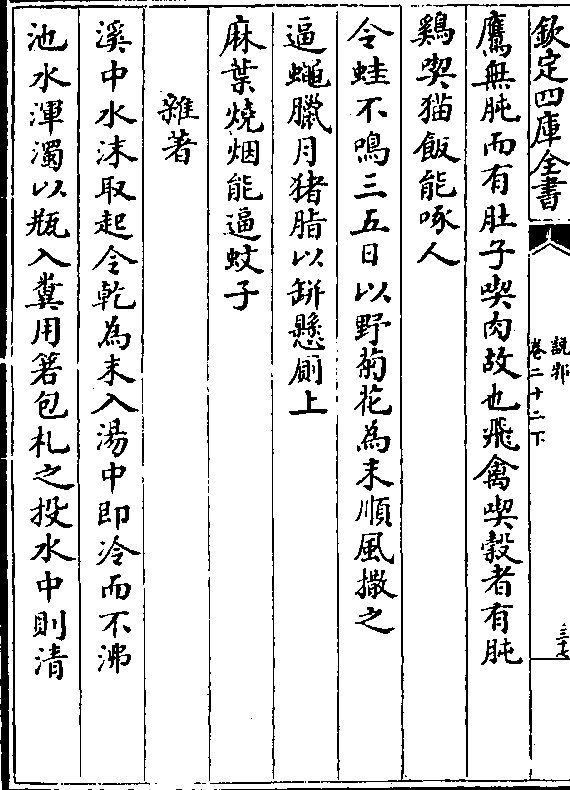 欽定四庫全書
說郛
卷二十二下
三十七
鷹無肫而有肚子喫肉故也飛禽喫穀者有肫
鷄喫猫飯能啄人
令蛙不鳴三五日以野菊花為末順風撒之
逼蠅臘月猪脂以缾懸厠上
麻葉燒烟能逼蚊子
雜著
溪中水沫取起令乾為末入湯中即冷而不沸
池水渾濁以瓶入糞用箬包札之投水中則清